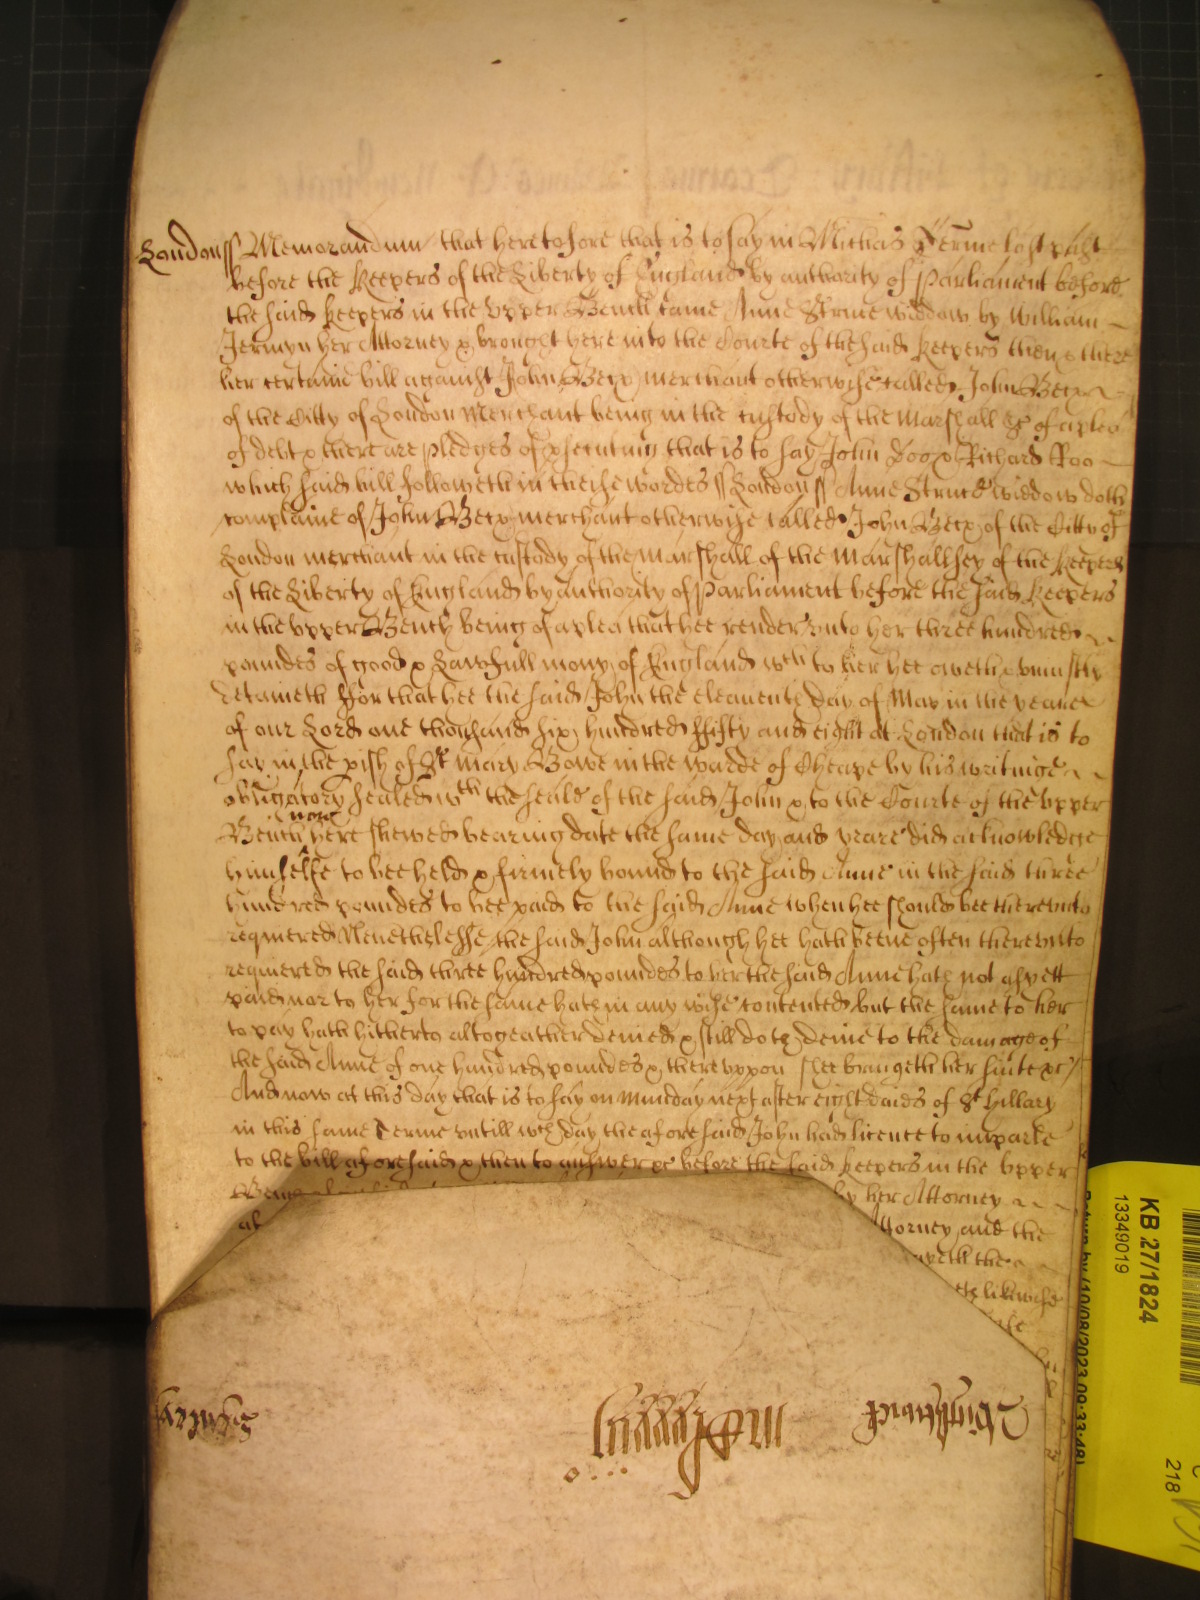 London ss Memorandum that heretofore that is to say in Michas Terme last past
before the Keepers of the Liberty of England by authority of Parliament before
the said Keepers in the upper Bench came Anne Strut widdow by William
Jermyn her Attorney & brought here into the Courte of the said Keepers then & there
her certaine bill against John Beix merchant otherwise called John Beix
of the Citty of London Merchant being in the custody of the Marshall &c of a plea
of debt & there are pledges of psecuting that is to say John Doo & Richard Roo
which said bill followeth in theise wordes ss London ss Anne widdow doth
complaine of John Beix merchant otherwise called John Beix of the Citty of
London merchant in the custody of the Marshall of the Marshallsey of the Keepers
of the Liberty of England by authority of Parliament before the said Keepers
in the upper Bench being of a plea that hee render unto her three hundred
poundes of good & Lawfull mony of England wch to her hee oweth & uniustly
detaineth ffor that hee the said John the eleaventh day of May in the yeare
of our Lord one thousand six hundred ffifty and eight at London that is to
say in the pish of St Mary Bowe in the warde of Cheape by his writinge
obligatory sealed wth the seale of the said John & to the Courte of the upper
Bench now here shewed bearing date the same day and yeare did acknowledge
himselfe to bee held & firmely bound to the said Anne in the said three
hundred poundes to bee paid to the said Anne when hee should bee thereunto
required Nevethelesse the said John although hee hath beene often thereunto
required the said three hundred poundes to her the said Anne hath not as yett
paid nor to her for the same hath in any wise contented but the same to her
to pay hath hitherto altogeather denied & still doth denie to the damage of
the said Anne of one hundred poundes & thereuppon shee bringeth her suite &c
And now at this day that is to say on Munday next after eight daies of St Hillary
in this same Terme untill wch day the aforesaid John had licence to imparle
to the bill aforesaid & then to answer &c before the said Keepers in the upper
by her Attorney
Attorney and the
the
likewise
KB 27/1824
13349019
Return by (10/08/2023 09:33:48)
218